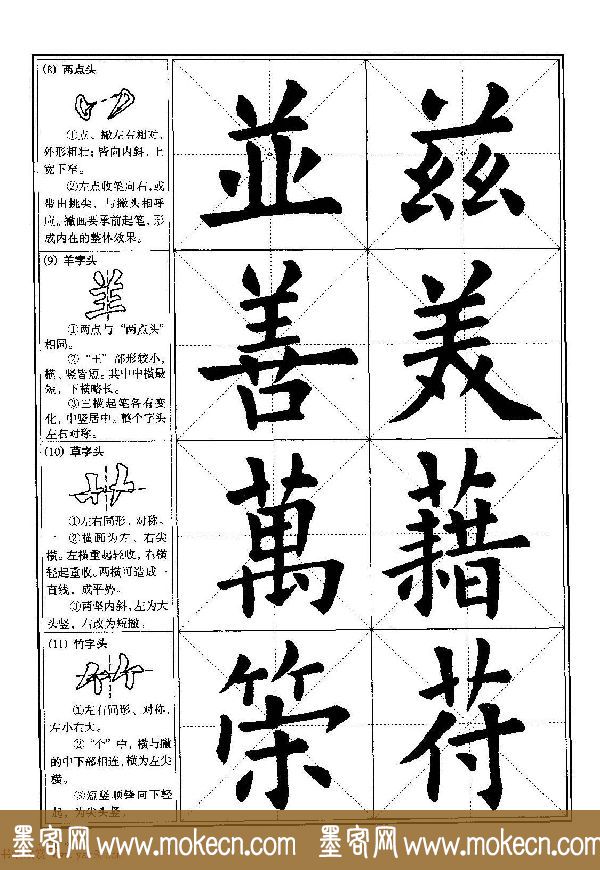 (8) 两点头
①点、撇左右相对,
外形粗壮;皆向内斜,上
宽下窄。
②左点收笔向右,或
带出挑尖、与撇头相呼
应。撇画要承前起笔,形
成内在的整体效果。
並 兹
(9) 羊字头
①两点与“两点头”
相同。
②“王”部形较小,
横、竖皆短。其中中横最
短,下横略长。
③三横起笔各有变
化,中竖居中。整个字头
左右对称。
善 美
(10) 草字头
①左右同形、对称。
②横画为左、右尖
横。左横重起轻收,右横
轻起重收。两横可造成一
直线,成平势。
③两竖内斜,左为大
头竖,右改为短撇。
萬 藉
(11) 竹字头
①左右同形、对称,
左小右大。
②“个”中,横与撇
的中下部相连,横为左尖
横。
③短竖顺锋向下轻
起,为尖头竖。
符
墨客网 www.mokecn.com 墨客网 www.mokecn.com